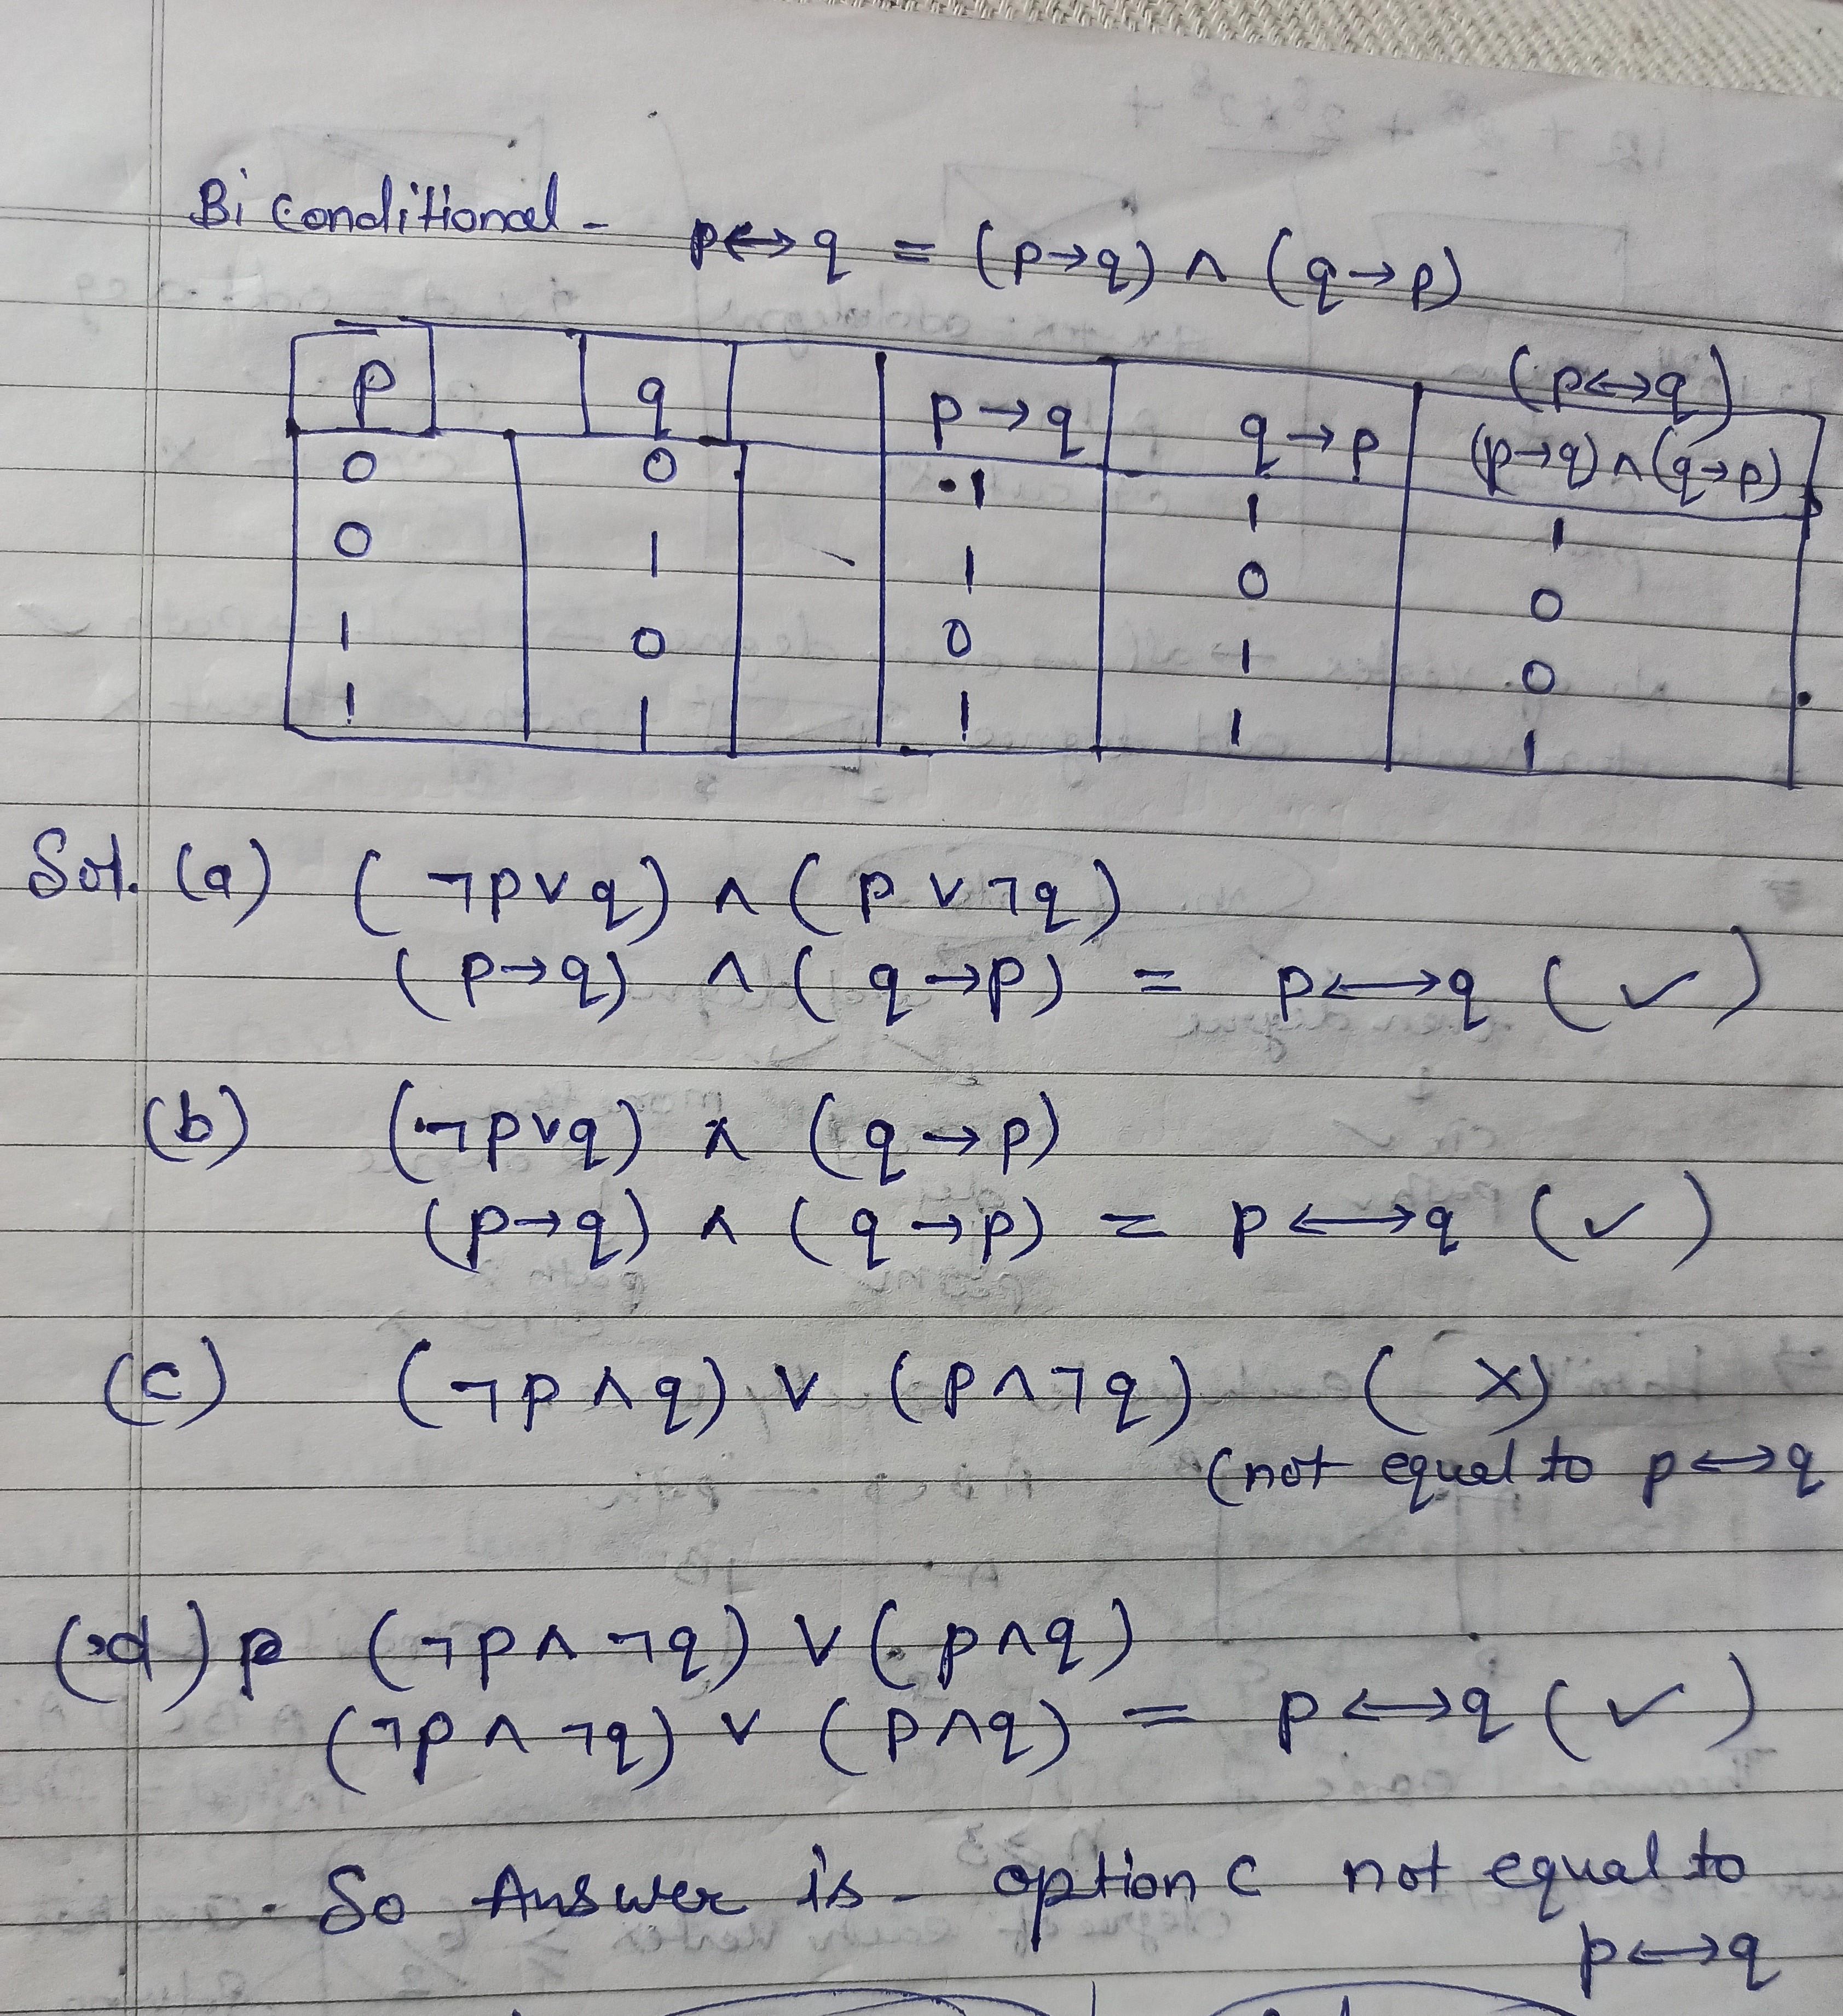 Bi conditional - p↔q = (p→q) ∧ (q→p)
(p↔q)
p q p→q q→p (p→q)∧(q→p)
0 0 1 1 1
0 1 1 0 0
1 0 0 1 0
1 1 1 1 1
Sol. (a) (¬p∨q) ∧ (p∨¬q)
(p→q) ∧ (q→p) = p↔q (✓)
(b) (¬p∨q) ∧ (q→p)
(p→q) ∧ (q→p) = p↔q (✓)
(c) (¬p∧q) ∨ (p∧¬q) (×)
(not equal to p↔q
(d) p (¬p∧¬q) ∨ (p∧q)
(¬p∧¬q) ∨ (p∧q) = p↔q (✓)
So Answer is - option c not equal to
p↔q